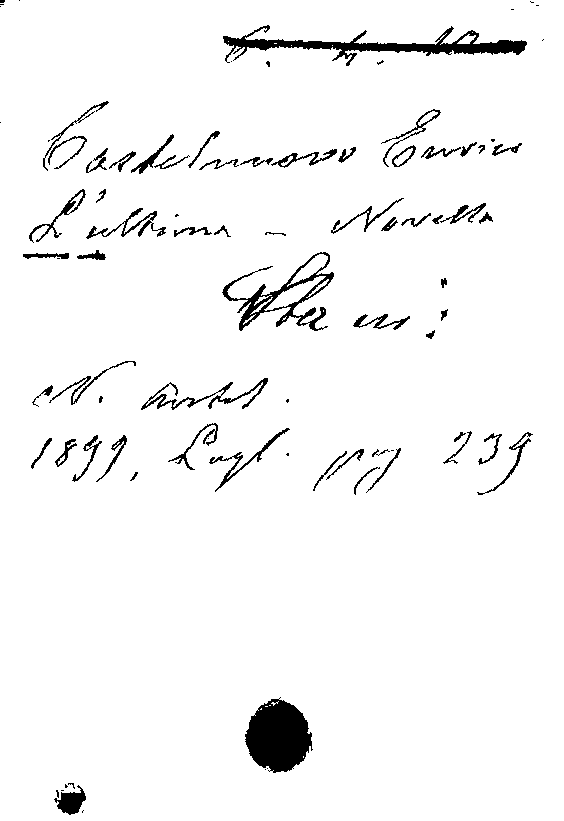 Castelnuovo Enrico
L'ultima - Novella
N. Antol.
1899, Lugl. pag 239